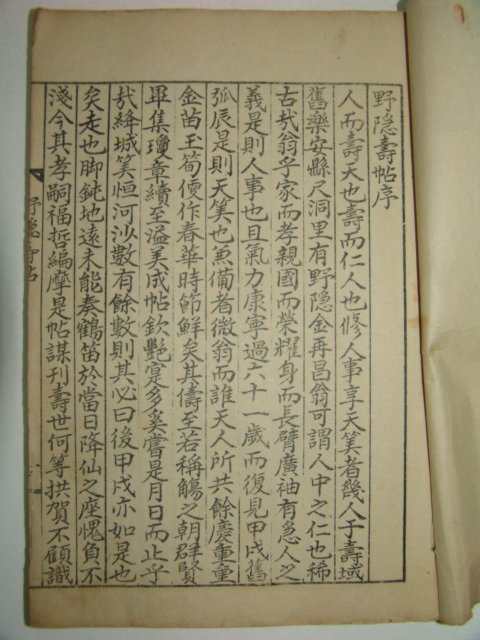 野隐壽帖序
人而壽天也壽而仁人也修人事享天筭者幾人于壽域
舊樂安縣尺洞里有野隐金再昌翁可謂人中之仁也稀
古㢤翁乎家而孝親國而榮耀身而長臂廣袖有急人之
義是則人事也且氣力康寧過六十一歲而復見甲戌舊
弧辰是則天筭也兼備者微翁而誰天人所共餘慶重重
金苗玉筍便作春華時節鮮矣其儔至若稱觴之朝群賢
畢集瓊章續至溢美成帖欽艶寔多奚啻是月日而止乎
㢤絳城筭恒河沙數有餘數則其必曰後甲戌亦如是也
矣走也脚鈍地遠未能奏鶴笛於當日降仙之座愧負不
淺今其孝嗣福哲編摩是帖謀刊壽世何等拱賀不顧識
野隐壽帖